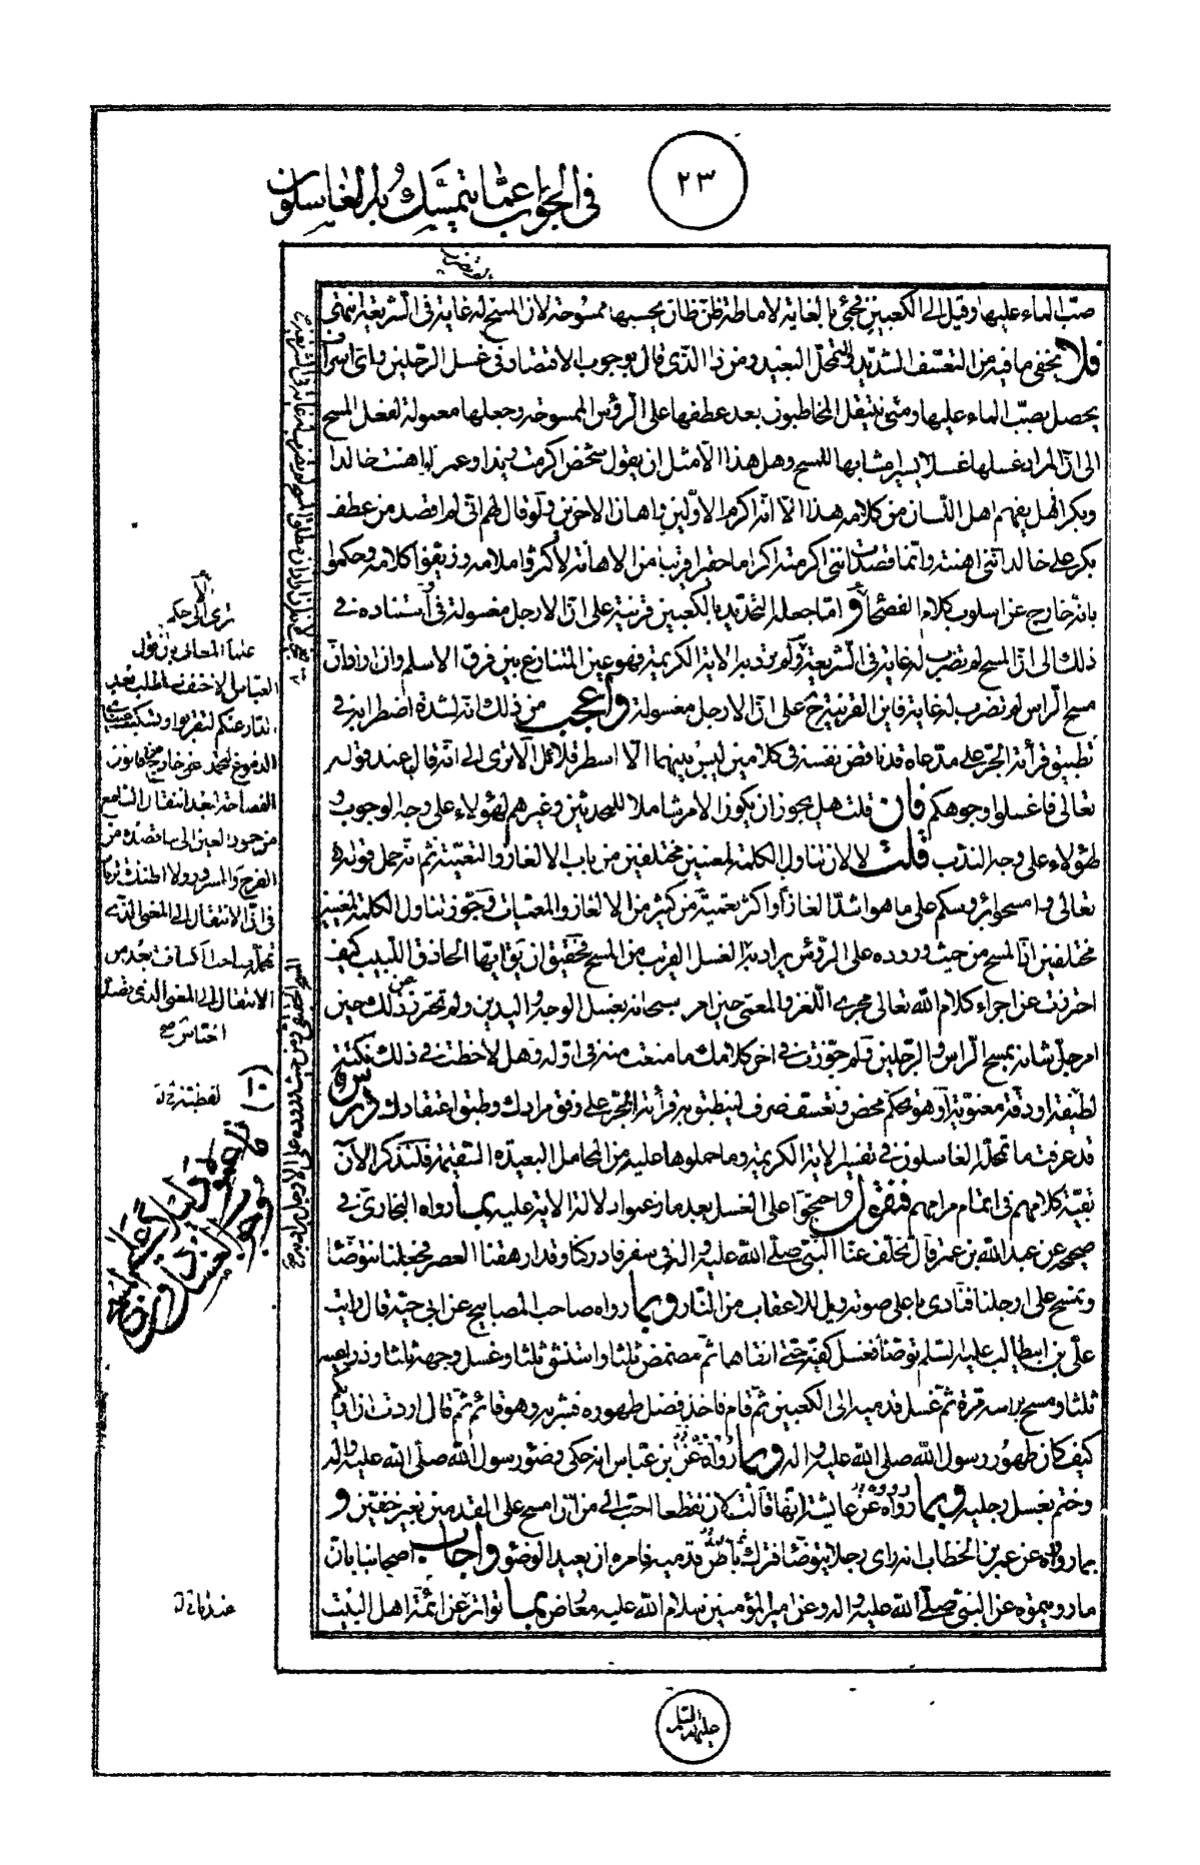 ٢٣
في الجواب عما يتمسك به الغاسلون
صبّ الماء عليها وقيل الى الكعبين فجئ بالغاية لاماطة ظنّ ظان يحسبها ممسوحة لان المسح له غاية في الشريعة انتهى
فلا يخفى ما فيه من التعسّف الشديد والتمحّل البعيد ومن ذا الذي قال بوجوب الاقتصاد في غسل الرجلين واى اسراف
يحصل بصبّ الماء عليها ومتى ينتقل المخاطبون بعد عطفها على الرؤس الممسوحة وجعلها معمولة لفعل المسح
الى انّ المراد غسلها غسلا يسيرا مشابها للمسح وهل هذا الا مثل ان يقول شخص اكرمت زيدا وعمرا واهنت خالدا
وبكرا فهل يفهم اهل اللسان من كلامه هذا الا انه اكرم الاوّلين واهان الاخرين ولو قال لهم انى لم اقصد من عطف
بكر على خالد انّنى اهنته وانما قصدت انني اكرمته اكراما حقيرا قريبا من الاهانة لأكثروا ملامه وزيّفوا كلامه وحكموا
بانه خارج عن اسلوب كلام الفصحاء وامّا جعله التحديد بالكعبين قرينة على انّ الارجل مغسولة واستناده في
ذلك الى انّ المسح لم تضرب له غاية في الشريعة ولم يرد به الآية الكريمة فهو عين المتنازع بين فرق الاسلام وان اراد انّ
مسح الراس لم تضرب له غاية فاين القرينة ح على انّ الارجل مغسولة واعجب من ذلك انه لشدة اضطرابه في
تطبيق قرأة الجرّ على مدّعاه قد ناقض نفسه في كلامين ليس بينهما الّا اسطر قلائل الا ترى الى انه قال عند قوله
تعالى فاغسلوا وجوهكم فان قلت هل يجوز ان يكون الامر شاملا للمحدثين وغيرهم لهؤلاء على وجه الوجوب و
لهؤلاء على وجه الندب قلت لا لان تناول الكلمة لمعنيين مختلفين من باب الالغاز والتعمية ثم انه حمل قوله
تعالى وامسحوا برؤسكم على ما هو اشدّ الغازا واكثر تعمية من كثير من الالغاز والمعميات وجوّز تناول الكلمة لمعنيين
مختلفين اذ المسح من حيث وروده على الرؤس يراد به المسح ومن حيث الغسل القريب من المسح فحقيق ان يق ايها الحاذق اللبيب كيف
احترزت عن اجراء كلام الله تعالى مجرى اللغز والمعمّى حين امر سبحانه بغسل الوجه واليدين ولم تحترز عن ذلك حين
امر جلّ شانه بمسح الراس والرجلين فلم جوّزت في اخر كلامك ما منعت منه في اوّله وهل لاحظت في ذلك نكتة
لطيفة او دقّة معنوية او هو تحكّم محض وتعسف صرف لينطبق به قرأة الجرّ على وفق مرادك وطبق اعتقادك درس
قد عرفت ما تمحّله الغاسلون في تفسير الآية الكريمة وما حملوها عليه من المحامل البعيدة السقيمة فلنذكر الآن
بقيّة كلامهم في اتمام مرامهم فنقول واحتجوا على الغسل بعد ما زعموا دلالة الاية عليه بما رواه البخارى في
صحيحه عن عبد الله بن عمر قال تخلّف عنّا النبّى صلّى الله عليه واله في سفر فادركنا وقد ارهقنا العصر فجعلنا نتوضّا
ونمسح على ارجلنا فنادى باعلى صوته ويل للاعقاب من النار وبما رواه صاحب المصابيح عن ابى حيّة قال رايت
علىّ بن ابيطالب عليه السلم توضأ فغسل كفيه حتّى انقاهما ثم مضمض ثلثا واستنشق ثلثا وغسل وجهه ثلثا وذراعيه
ثلثا ومسح براسه مرة ثم غسل قدميه الى الكعبين ثم قام فاخذ فضل طهوره فشربه وهو قائم ثم قال اردت ان اريكم
كيف كان طهور رسول الله صلى الله عليه واله وبما رووه عن ابن عباس انه حكى وضوء رسول الله صلى الله عليه واله
وختم بغسل رجليه وبما رووه عن عايشة انها قالت لان تقطعا احبّ الى من ان امسح على القدمين بغير خفين و
بما رووه عن عمر بن الخطاب انه راى رجلا يتوضا فترك باطن قدميه فامره ان يعيد الوضوء واجاب اصحابنا بان
ما رويتموه عن النبى صلى الله عليه واله وعن امير المؤمنين سلام الله عليه معارض بما تواتر عن ائمة اهل البيت
عليهم السلم
ترى الى حكم
علماء المعانى بان قول
العباس بن الاحنف ساطلب بعد
الدار عنكم لتقربوا وتسكب عيناى
الدموع لتجمدا
الفصاحة لبعد انتقال السامع
من جمود العين الى ما قصده من
الفرح والسرور ولا اظنك ترتاب
في انّ الانتقال الى المعنى الذى
تمحله صاحب الكشاف بعد من
الانتقال الى المعنى الذى قصده
(١٠)